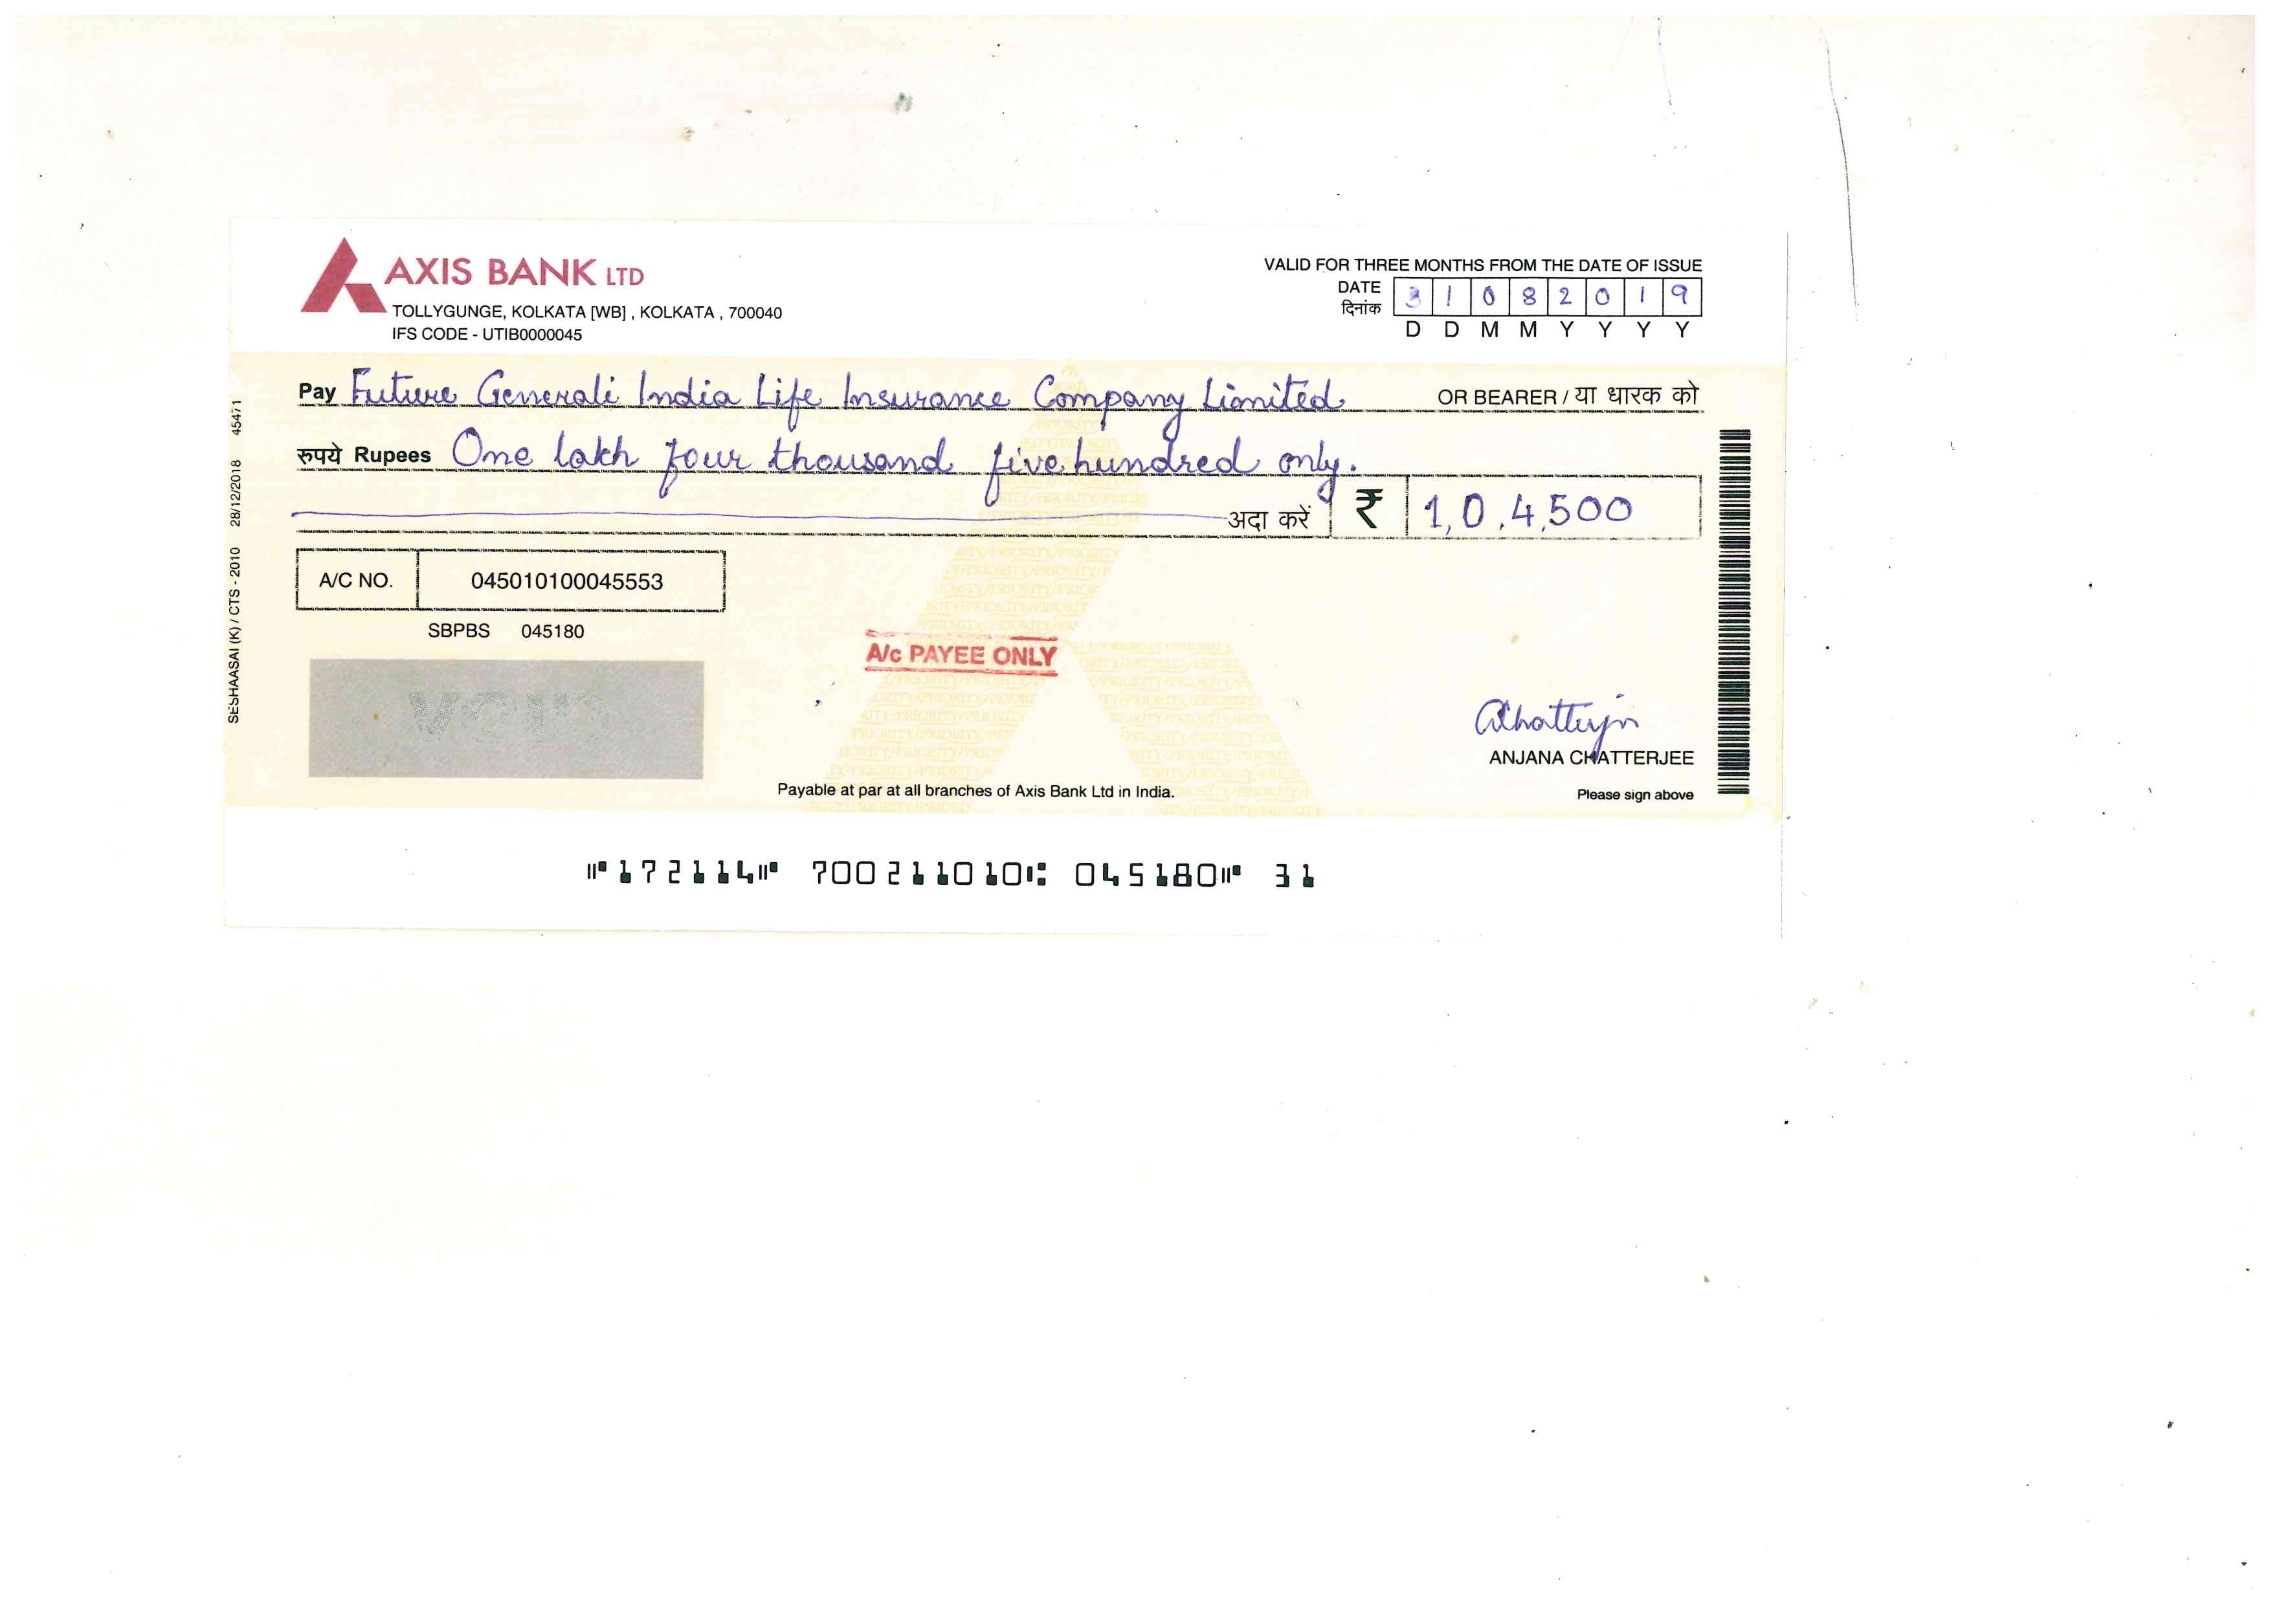 AXIS BANK LTD
TOLLYGUNGE, KOLKATA [WB] , KOLKATA , 700040
IFS CODE - UTIB0000045
VALID FOR THREE MONTHS FROM THE DATE OF ISSUE
DATE
दिनांक
3 1 0 8 2 0 1 9
D D M M Y Y Y Y
Pay Future Generali India Life Insurance Company Limited OR BEARER / या धारक को
रूपये Rupees One lakh four thousand five hundred only.
अदा करें ₹ 1,0,4,500
A/C NO. 045010100045553
SBPBS 045180
A/c PAYEE ONLY
VOID
ANJANA CHATTERJEE
Payable at par at all branches of Axis Bank Ltd in India.
Please sign above
SESHAASAI (K) / CTS - 2010 28/12/2018 45471
⑈172114⑈ 700211010⑆ 045180⑈ 31